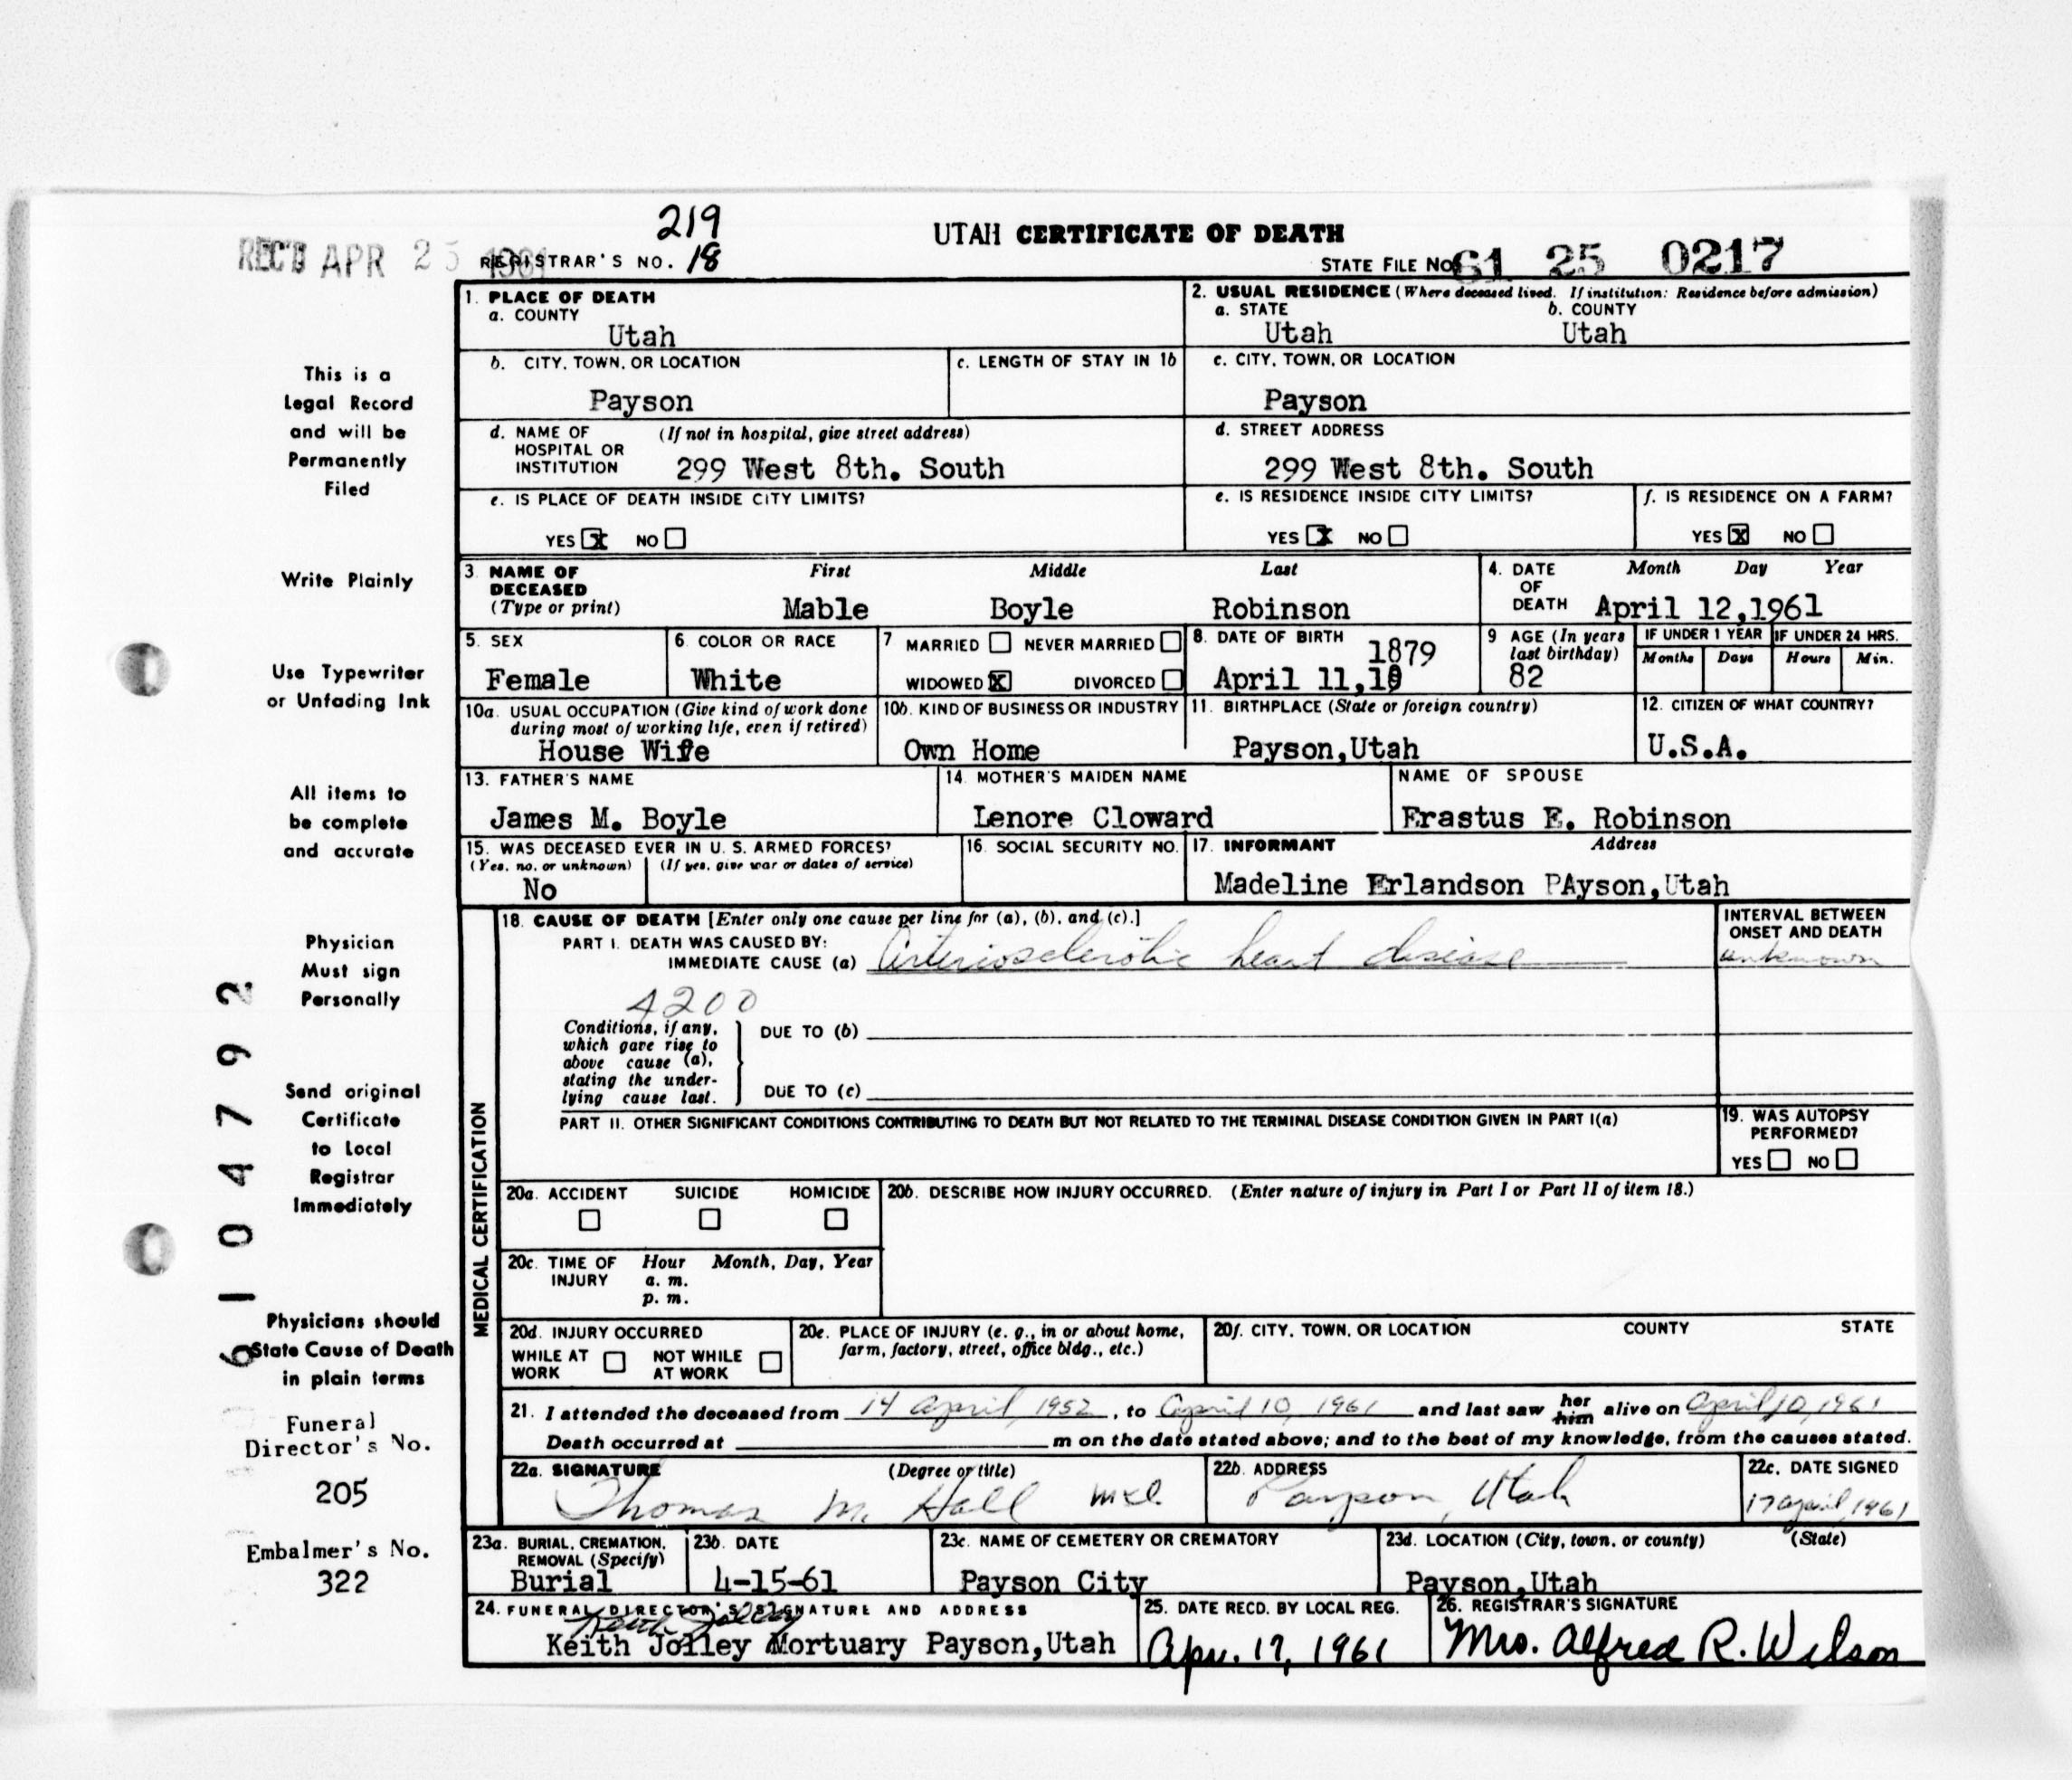 219
UTAH CERTIFICATE OF DEATH
REC'D APR 25 1961
REGISTRAR'S NO. 18
STATE FILE NO. 61 25 0217
1. PLACE OF DEATH
a. COUNTY
Utah
2. USUAL RESIDENCE (Where deceased lived. If institution: Residence before admission)
a. STATE b. COUNTY
Utah Utah
b. CITY, TOWN, OR LOCATION
Payson
c. LENGTH OF STAY IN 1b
c. CITY, TOWN, OR LOCATION
Payson
d. NAME OF (If not in hospital, give street address)
HOSPITAL OR
INSTITUTION 299 West 8th. South
d. STREET ADDRESS
299 West 8th. South
e. IS PLACE OF DEATH INSIDE CITY LIMITS?
YES X NO
e. IS RESIDENCE INSIDE CITY LIMITS?
YES X NO
f. IS RESIDENCE ON A FARM?
YES X NO
3. NAME OF DECEASED (Type or print)
First Middle Last
Mable Boyle Robinson
4. DATE OF DEATH
Month Day Year
April 12,1961
5. SEX
Female
6. COLOR OR RACE
White
7 MARRIED NEVER MARRIED
WIDOWED X DIVORCED
8. DATE OF BIRTH
1879
April 11,18
9 AGE (In years last birthday)
82
IF UNDER 1 YEAR IF UNDER 24 HRS.
Months Days Hours Min.
10a. USUAL OCCUPATION (Give kind of work done
during most of working life, even if retired)
House Wife
10b. KIND OF BUSINESS OR INDUSTRY
Own Home
11. BIRTHPLACE (State or foreign country)
Payson,Utah
12. CITIZEN OF WHAT COUNTRY?
U.S.A.
13. FATHER'S NAME
James M. Boyle
14. MOTHER'S MAIDEN NAME
Lenore Cloward
NAME OF SPOUSE
Erastus E. Robinson
15. WAS DECEASED EVER IN U. S. ARMED FORCES?
(Yes, no, or unknown) (If yes, give war or dates of service)
No
16. SOCIAL SECURITY NO.
17. INFORMANT Address
Madeline Erlandson PAyson,Utah
MEDICAL CERTIFICATION
18. CAUSE OF DEATH [Enter only one cause per line for (a), (b), and (c).]
PART I. DEATH WAS CAUSED BY:
IMMEDIATE CAUSE (a) Arteriosclerotic heart disease
INTERVAL BETWEEN
ONSET AND DEATH
unknown
4200
Conditions, if any,
which gave rise to
above cause (a),
stating the under-
lying cause last.
DUE TO (b)
DUE TO (c)
PART II. OTHER SIGNIFICANT CONDITIONS CONTRIBUTING TO DEATH BUT NOT RELATED TO THE TERMINAL DISEASE CONDITION GIVEN IN PART I(a)
19. WAS AUTOPSY
PERFORMED?
YES NO
20a. ACCIDENT SUICIDE HOMICIDE
20b. DESCRIBE HOW INJURY OCCURRED. (Enter nature of injury in Part I or Part II of item 18.)
20c. TIME OF INJURY
Hour Month, Day, Year
a. m.
p. m.
20d. INJURY OCCURRED
WHILE AT WORK NOT WHILE AT WORK
20e. PLACE OF INJURY (e. g., in or about home,
farm, factory, street, office bldg., etc.)
20f. CITY, TOWN, OR LOCATION COUNTY STATE
21. I attended the deceased from 14 April, 1952, to April 10, 1961 and last saw her him alive on April 10, 1961
Death occurred at m on the date stated above; and to the best of my knowledge, from the causes stated.
22a. SIGNATURE (Degree or title)
Thomas M. Hall M.D.
22b. ADDRESS
Payson, Utah
22c. DATE SIGNED
17 April, 1961
23a. BURIAL, CREMATION,
REMOVAL (Specify)
Burial
23b. DATE
4-15-61
23c. NAME OF CEMETERY OR CREMATORY
Payson City
23d. LOCATION (City, town, or county) (State)
Payson,Utah
24. FUNERAL DIRECTOR'S SIGNATURE AND ADDRESS
Keith Jolley
Keith Jolley Mortuary Payson,Utah
25. DATE RECD. BY LOCAL REG.
Apr. 17, 1961
26. REGISTRAR'S SIGNATURE
Mrs. Alfred R. Wilson
This is a
Legal Record
and will be
Permanently
Filed
Write Plainly
Use Typewriter
or Unfading Ink
All items to
be complete
and accurate
Physician
Must sign
Personally
Send original
Certificate
to Local
Registrar
Immediately
Physicians should
State Cause of Death
in plain terms
Funeral
Director's No.
205
Embalmer's No.
322
6104792